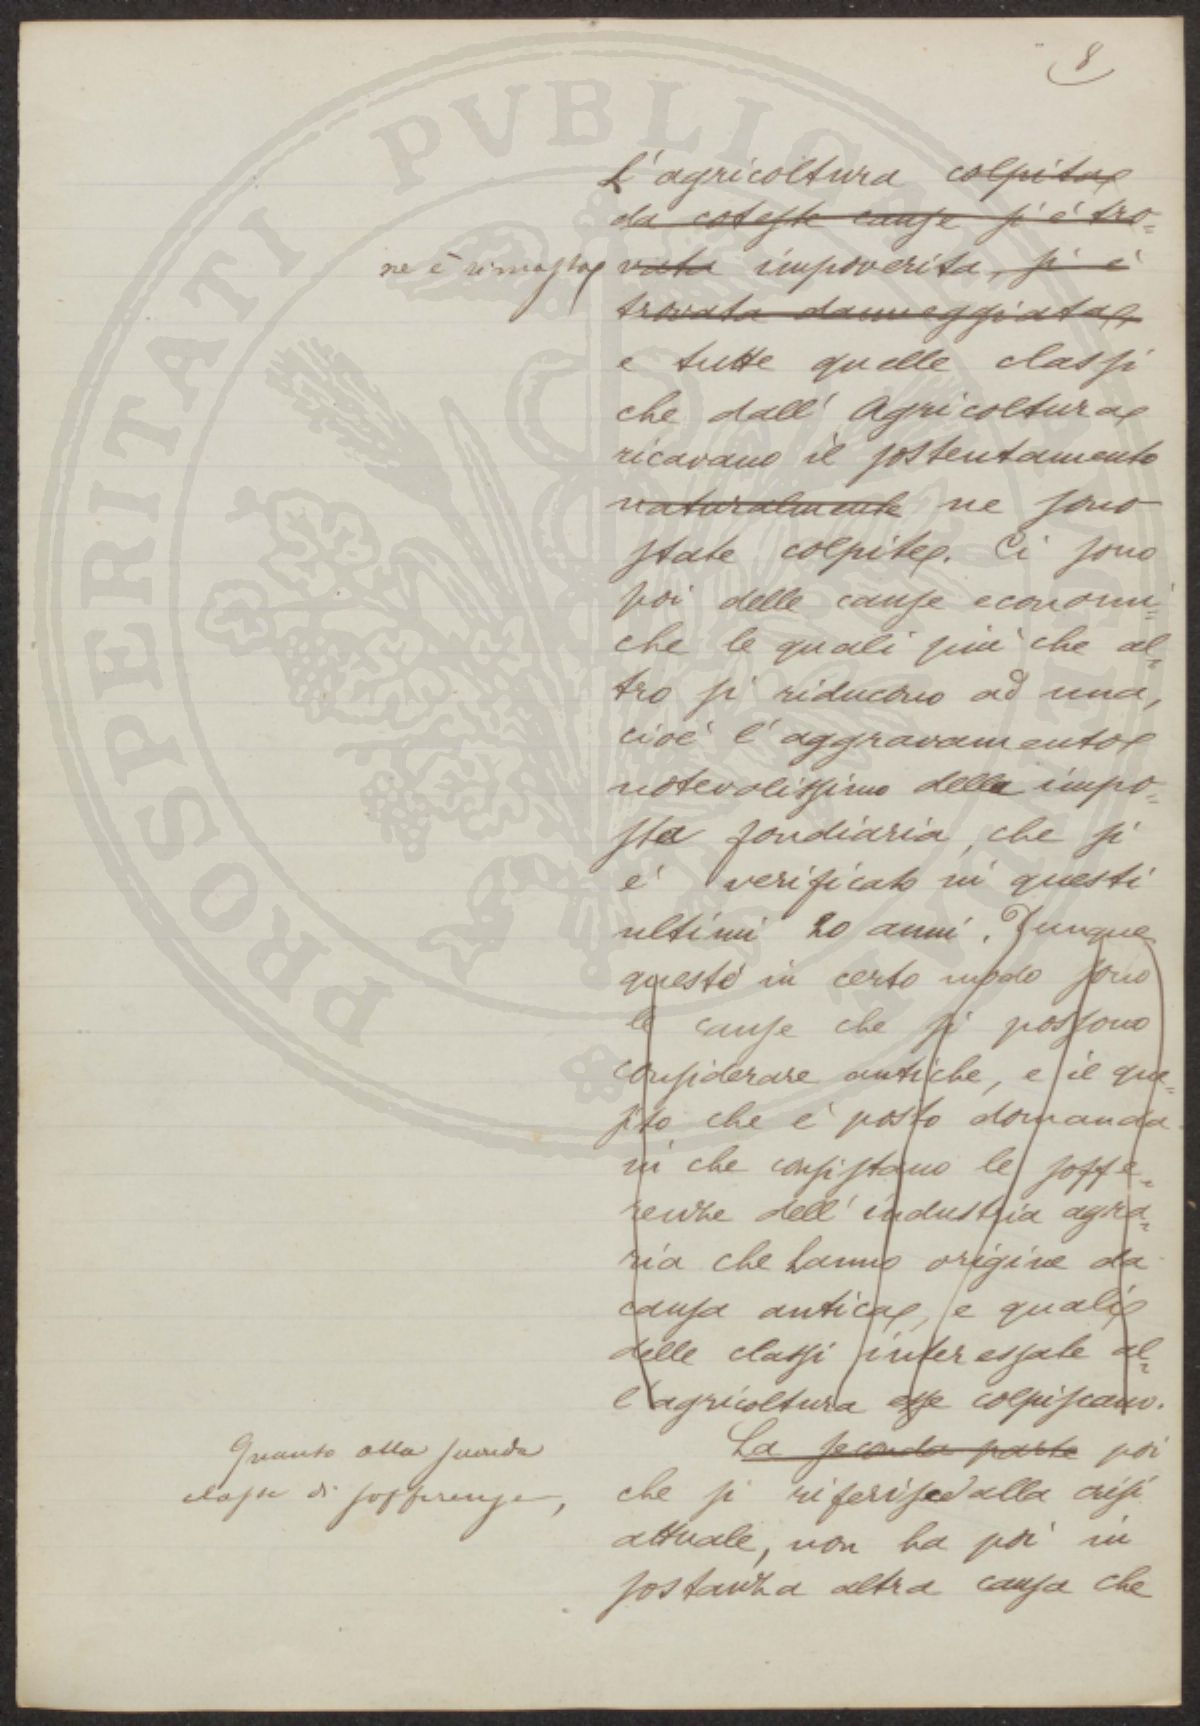 8
L'agricoltura colpita
da coteste cause si è tro=
ne è rimasta vata impoverita, si è
trovata danneggiata
e tutte quelle classi
che dall' Agricoltura
ricavano il sostentamento
naturalmente ne sono
state colpite. Ci sono
poi delle cause economi=
che le quali più che al=
tro si riducono ad una,
cioè l'aggravamento
notevolissimo della impo=
sta fondiaria, che si
è verificato in questi
ultimi 20 anni. Dunque
queste in certo modo sono
le cause che si possono
considerare antiche, e il que=
sito che è posto domanda
in che consistano le soffe=
renze dell' industria agra=
ria che hanno origine da
causa antica, e quali
delle classi interessate al=
l'agricoltura esse colpiscano.
Quanto alla seconda
classe di sofferenze,
La seconda parte poi
che si riferisce alla crisi
attuale, non ha poi in
sostanza altra causa che
PROSPERITATI PVBLICAE